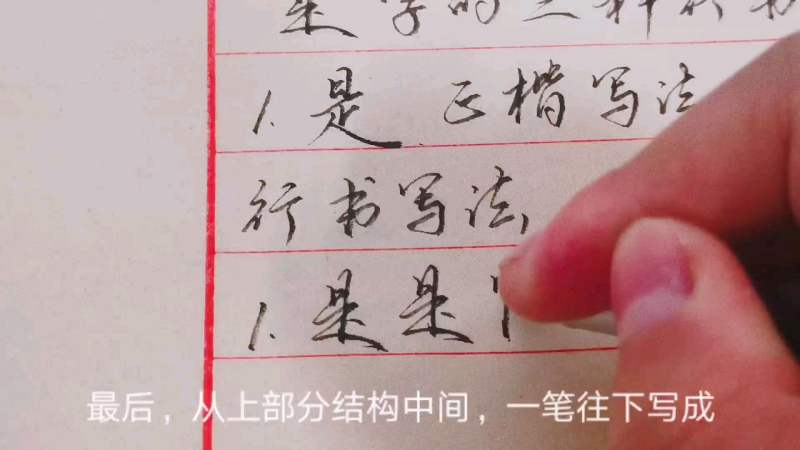 是字的三种行书
1. 是 正楷写法
行书写法
1. 是 是
最后，从上部分结构中间，一笔往下写成